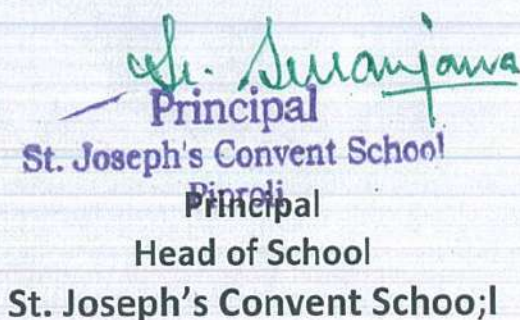 Sr.
Principal
St. Joseph's Convent School
Piproli
Principal
Head of School
St. Joseph's Convent Schoo;l